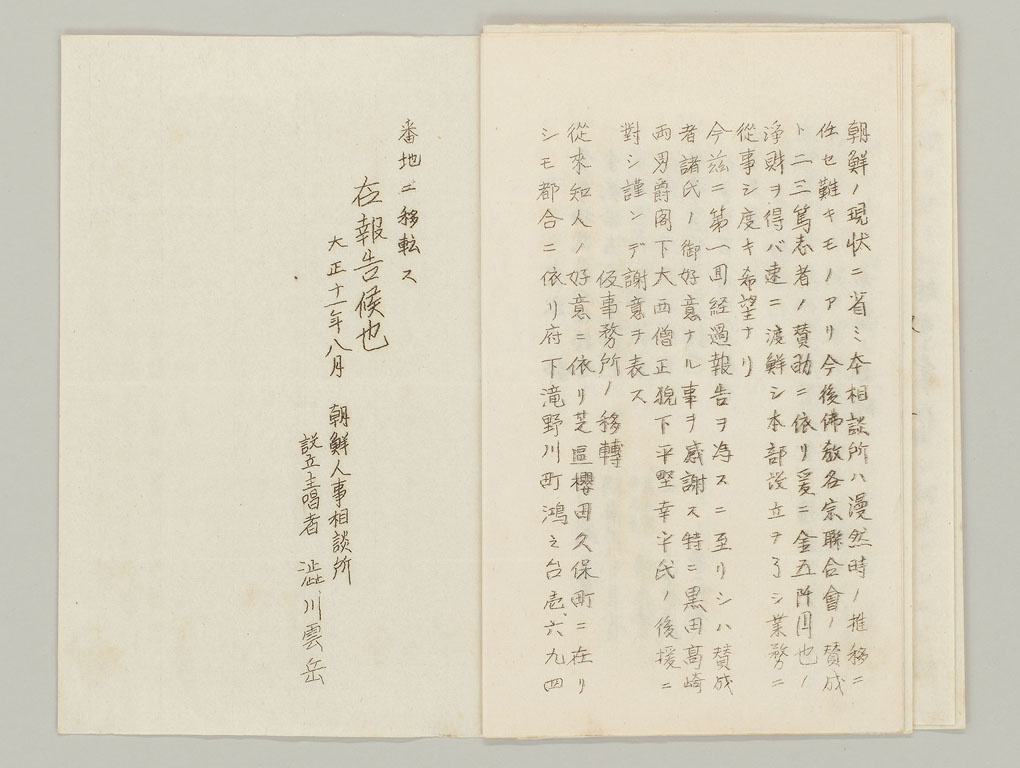 朝鮮ノ現状ニ省ミ本相談所ハ漫然時ノ推移ニ
仕セ難キモノアリ今後佛教各宗聯合會ノ賛成
ト二三篤志者ノ賛助ニ依リ爰ニ金五阡圓也ノ
淨財ヲ得バ速ニ渡鮮シ本部設立ヲ了シ業務ニ
從事シ度キ希望ナリ
今茲ニ第一回経過報告ヲ為スニ至リシハ賛成
者諸氏ノ御好意ナル事ヲ感謝ス特ニ黒田高崎
两男爵閣下大西僧正猊下平野幸平氏ノ後援ニ
對シ謹ンデ謝意ヲ表ス
仮事務所ノ移轉
從來知人ノ好意ニ依リ芝區櫻田久保町ニ在リ
シモ都合ニ依リ府下滝野川町鴻之台壱、六九四
番地ニ移転ス
右報告候也
大正十一年八月
朝鮮人事相談所
設立主唱者 澁川雲岳